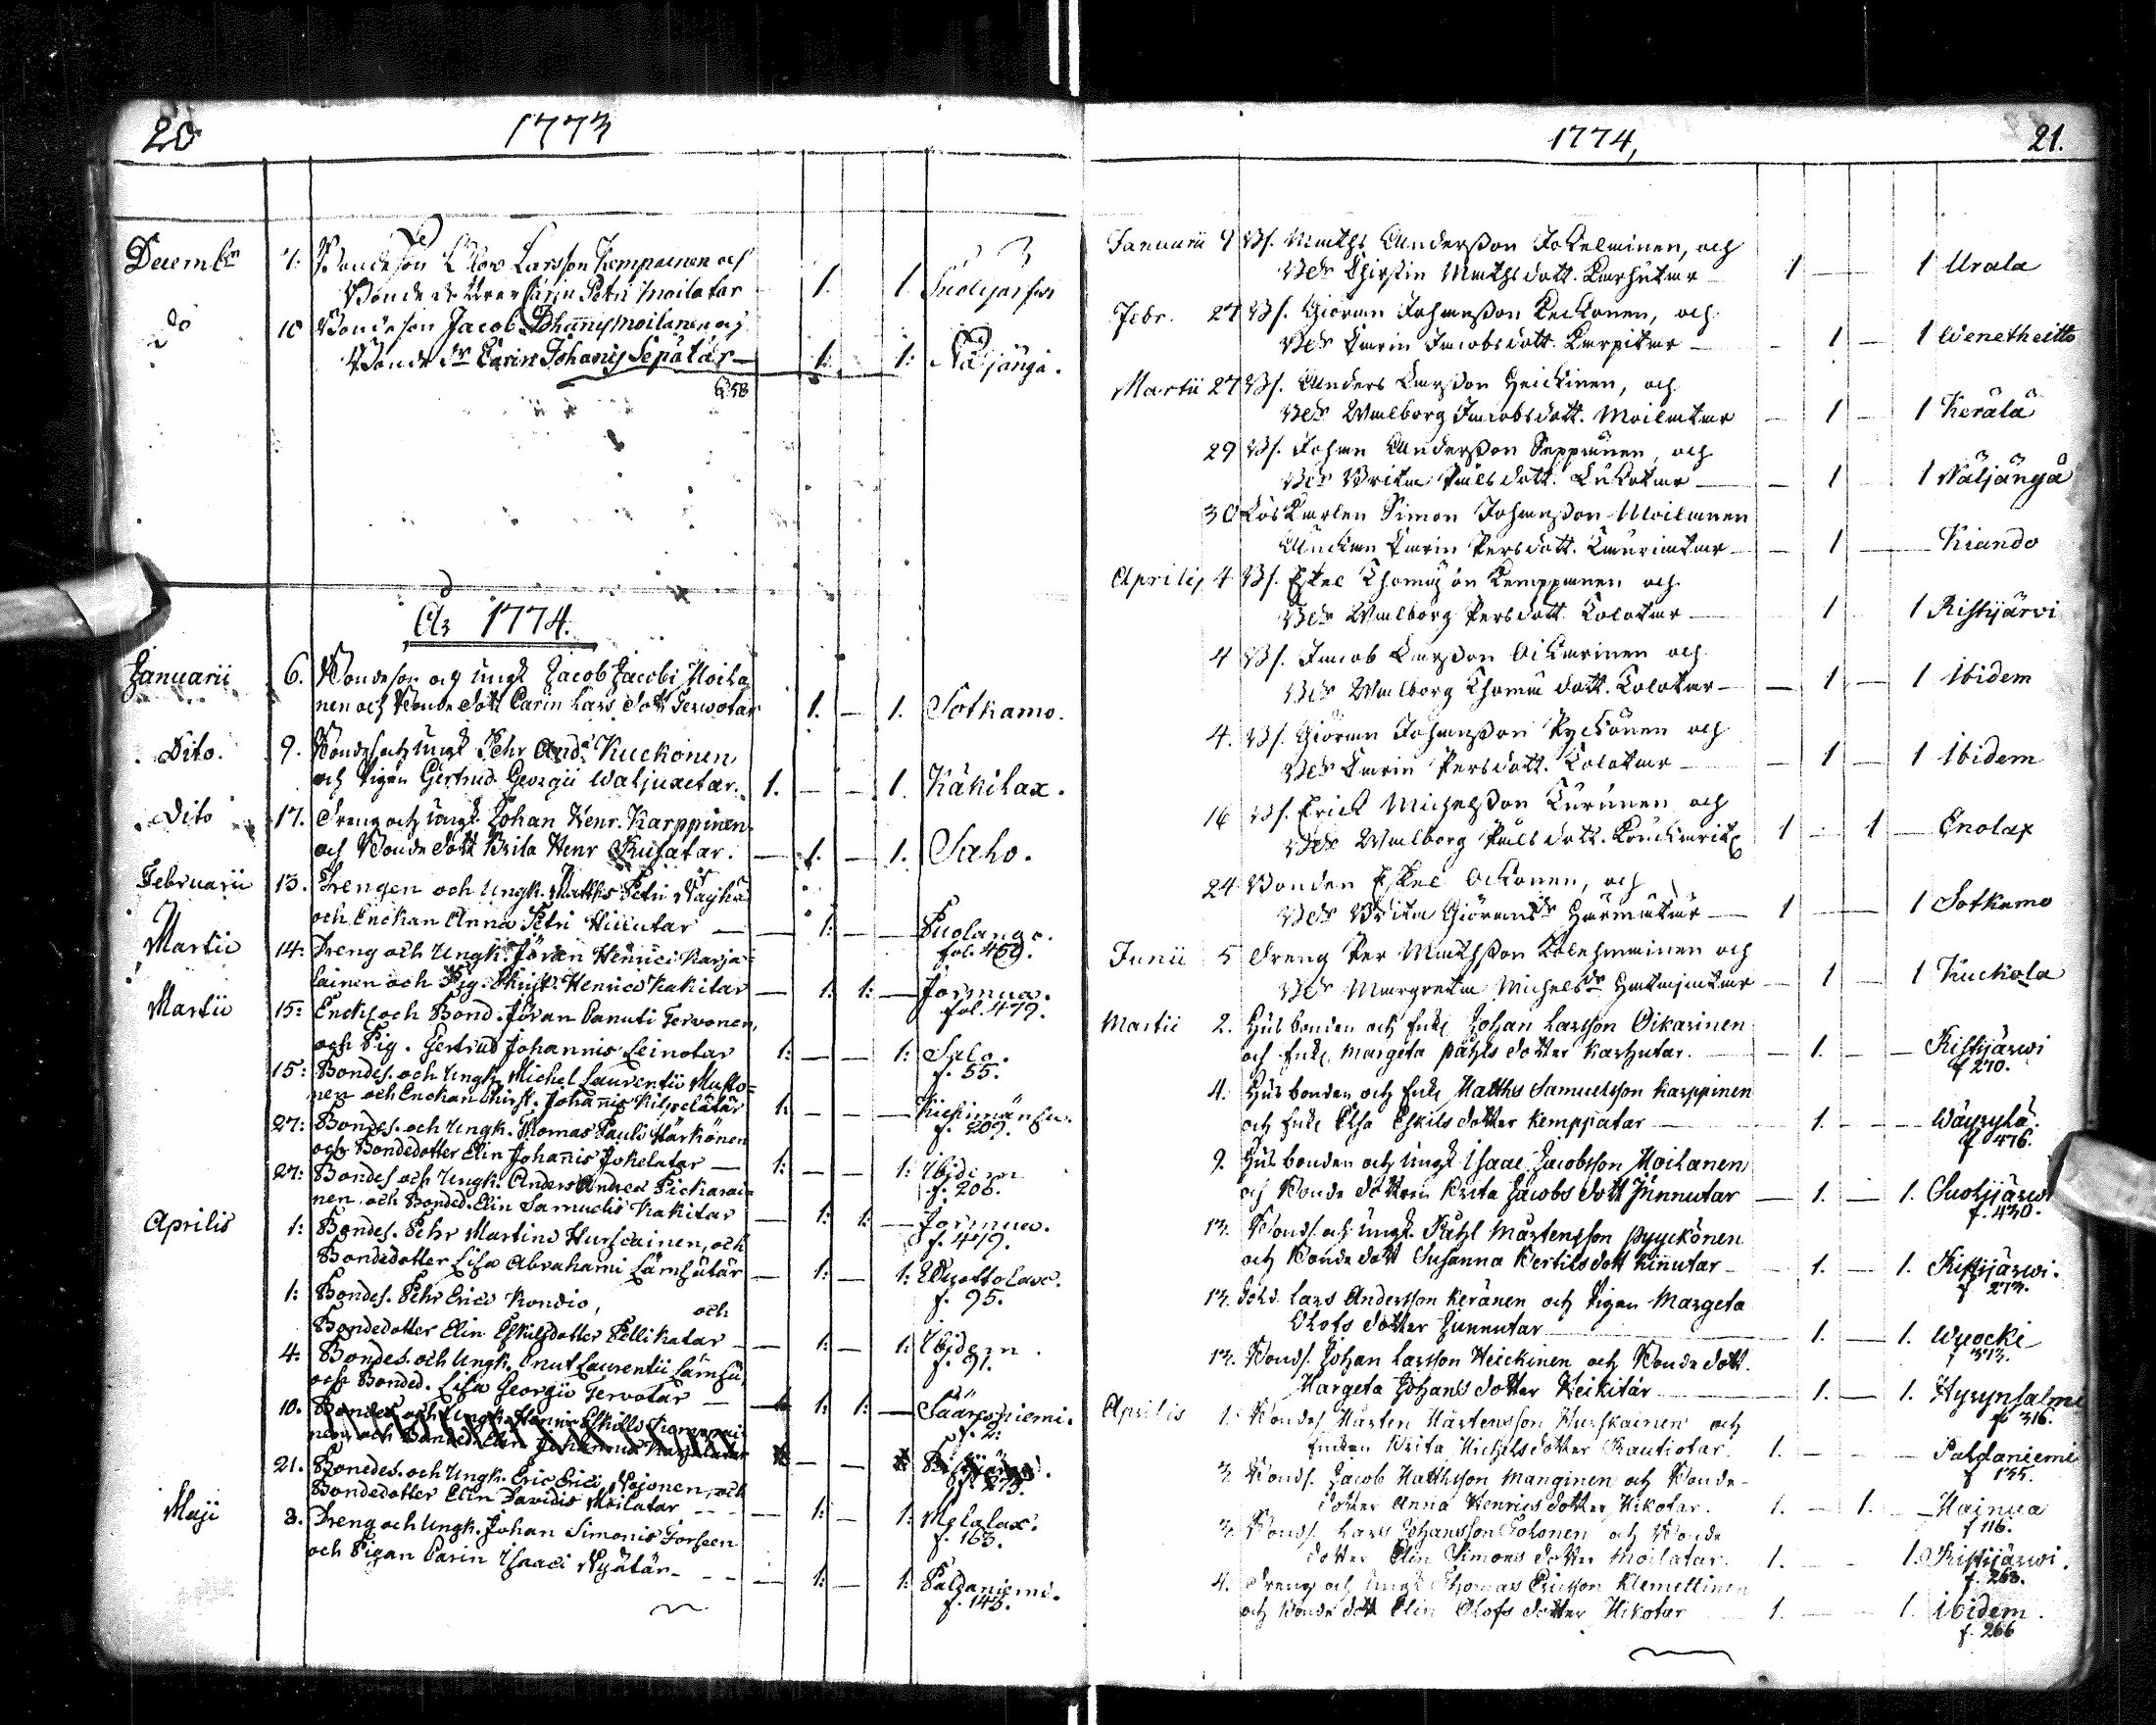 20 1773
Decembr 7. Bondeson Olow Larsson Kemppainen och
Bonde dr Carin Petri Moilatar 1. 1 Suolijärfwi
do 10 Bondeson Jacob Johannis Moilanen och
Bonde dr Carin Johannis Sepätär 1: 1: Näljängä.
Ao 1774.
Januarii 6. Bondeson och ungk Jacob Jacobi Moila
nen och Bonde dott Carin Lars dott Terwotar 1. — 1. Sotkamo.
Dito. 9. Bondes och ungk Pehr And. Kuckonen
och Pigan Gertrud Georgii Waljuxetar. 1. — — 1. Käkilax.
Dito 17. Dreng och ungk. Johan Henr. Karppinen
och Bonde dott Brita Henr — 1. — 1. Salo.
Februarii 13. Drengen och Ungk. Matths Petri Väyhä
och Enckan Anna Petri — 1: — — Puolango.
fol. 459.
Martii 14: Dreng och Ungk. Jöran Henrici Karja-
lainen och Pig. Christ. Henrici Kakitar — 1: 1: — Jormua.
fol. 479.
Martii 15: Enckl. och Bond. Jöran Canuti Tervonen,
och Pig. Gertrud Johannis Leinotar 1: — — 1: Salo.
f. 55.
15: Bondes. och Ungk. Michel Laurentii Musto-
nen och Enckan Christ. Johannis Kilpelätär 1: — — — Kiehimänsu.
f. 209.
27: Bondes. och Ungk. Thomas Pauli Härkönen
och Bondedotter Elin Johannis Jokelatar — 1: — — 1: Ibidem
f. 206.
27: Bondes och Ungk. Anders Andreæ Pickarai-
nen och Bonded. Elin Samuelis Kakitar — 1: 1: — Jormua.
f. 479.
Aprilis 1: Bondes. Pehr Martini Hurskainen, och
Bondedotter Lisa Abrahami Lämsätär — 1: — 1: Vuottolax.
f. 95.
1: Bondes. Pehr Erici Kondio, och
Bondedotter Elin Eskilsdotter Pellikatar — 1: — 1: Ibidem.
f. 91.
4: Bondes. och Ungk. Cnut Laurentii Lämsä,
och Bonded. Lisa Georgii Tervotar — 1: 1: — Säräisniemi.
f. 2:
10. Bondes. och Ungk. Eskills
nen, och Bonded. Elin Johannis
f. 273.
21. Bonedes. och Ungk. Eric Erici Mojonen, och
Bondedotter Elin Davidis Moilatar — 1: — 1: Melalax.
f. 163.
Maji 8. Dreng och Ungk. Johan Simonis Torssen
och Pigan Carin Isaaci Nyätär — 1: — 1: Paldaniemi.
f. 143.
1774, 21.
Januarii 9 Bs. Matths Andersson Jokelainen, och
Bdr Chirstin Matths dott. Karhutar 1 — 1 Urala
Febr. 27 Bs. Giöran Johansson Keckonen, och
Bdr Karin Jacobs dott. Karpitar — 1 — 1 Wenetheitto
Martii 27 Bs. Anders Larsson Heickinen, och
Bdr Walborg Jacobs dott. Moilatar — 1 — 1 Kerälä
29 Bs. Johan Andersson Seppänen, och
Bdr Brita Påls dott. — 1 — 1 Näljängä
30 Löskarlen Simon Johansson Moilanen
Änckan Karin Pers dott. Lauriatar — 1 — Kiando
Aprilis 4 Bs. Eskel Thomasson Kemppainen och
Bdr Walborg Pers dott. Tolotar — 1 1 Ristijärvi
4 Bs. Jacob Larsson Oickarinen och
Bdr Walborg Thomæ dott. Tolotar — 1 — 1 Ibidem
4. Bs. Giöran Johansson Pyckönen och
Bdr Karin Pers dott. Tolotar — 1 1 Ibidem
16 Bs. Erick Michelsson Kurunen och
Bdr Walborg Påls dott. 1 — 1 — Enolax
24 Bonden Eskel Ockonen, och
Bdr Brita Giörans dr Härmätär — 1 — 1 Sotkamo
Junii 5 Dreng Per Mathsson Kolehmainen och
Bdr Margreta Michels dr — 1 — 1 Kuckola
Martii 2. Husbonden och Enkl Johan Larsson Oikarinen
och Enk. Margeta Påhls dotter Karhutar. — 1. — — Ristijärwi
f 270.
4. Husbonden och Enkl Matths Samuelsson Karppinen
och Enk. Elsa Eskils dotter Kemppatar — 1. — — Wäyrylä.
f 476.
9. Husbonden och ungk Isaac Jacobsson Moilanen
och Bonde dottren Brita Jacobs dott Junnutar — 1. — 1. Suolijärwi
f. 430.
13. Bonds. och ungk. Påhl Mårtensson Pyyckönen
och Bonde dott Susanna Bertils dott Kinnutar — 1. — 1. Ristijärwi.
f 273.
13. Sold. Lars Andersson Keränen och Pigan Margeta
Olofs dotter Junnutar — 1. — 1. Wuocki
f 313.
13. Bonds. Johan Larsson Heickinen och Bonde dott.
Margeta Johans dotter Keikitär — 1. — 1. Hyrynsalmi
f 316.
Aprilis 1. Bondes Mårten Mårtensson Hurskainen och
Enckan Brita Michelsdotter Rautiotar. 1. — — — Paldaniemi
f 135.
3. Bonds. Jacob Matthsson Manginen och Bonde-
dotter Anna Henrics dotter Hikotar. 1. — 1. — Mainua
f 116.
3. Bonds. Lars Johansson Tolonen och Bonde
dotter Elin Simons dotter Moilatar. 1. — 1. Ristijärwi.
f. 268.
4. Dreng och ungk Thomas Ericsson Klemettinen
och Bonde dott Elin Olofs dotter Hikotar 1. — 1. ibidem.
f. 266